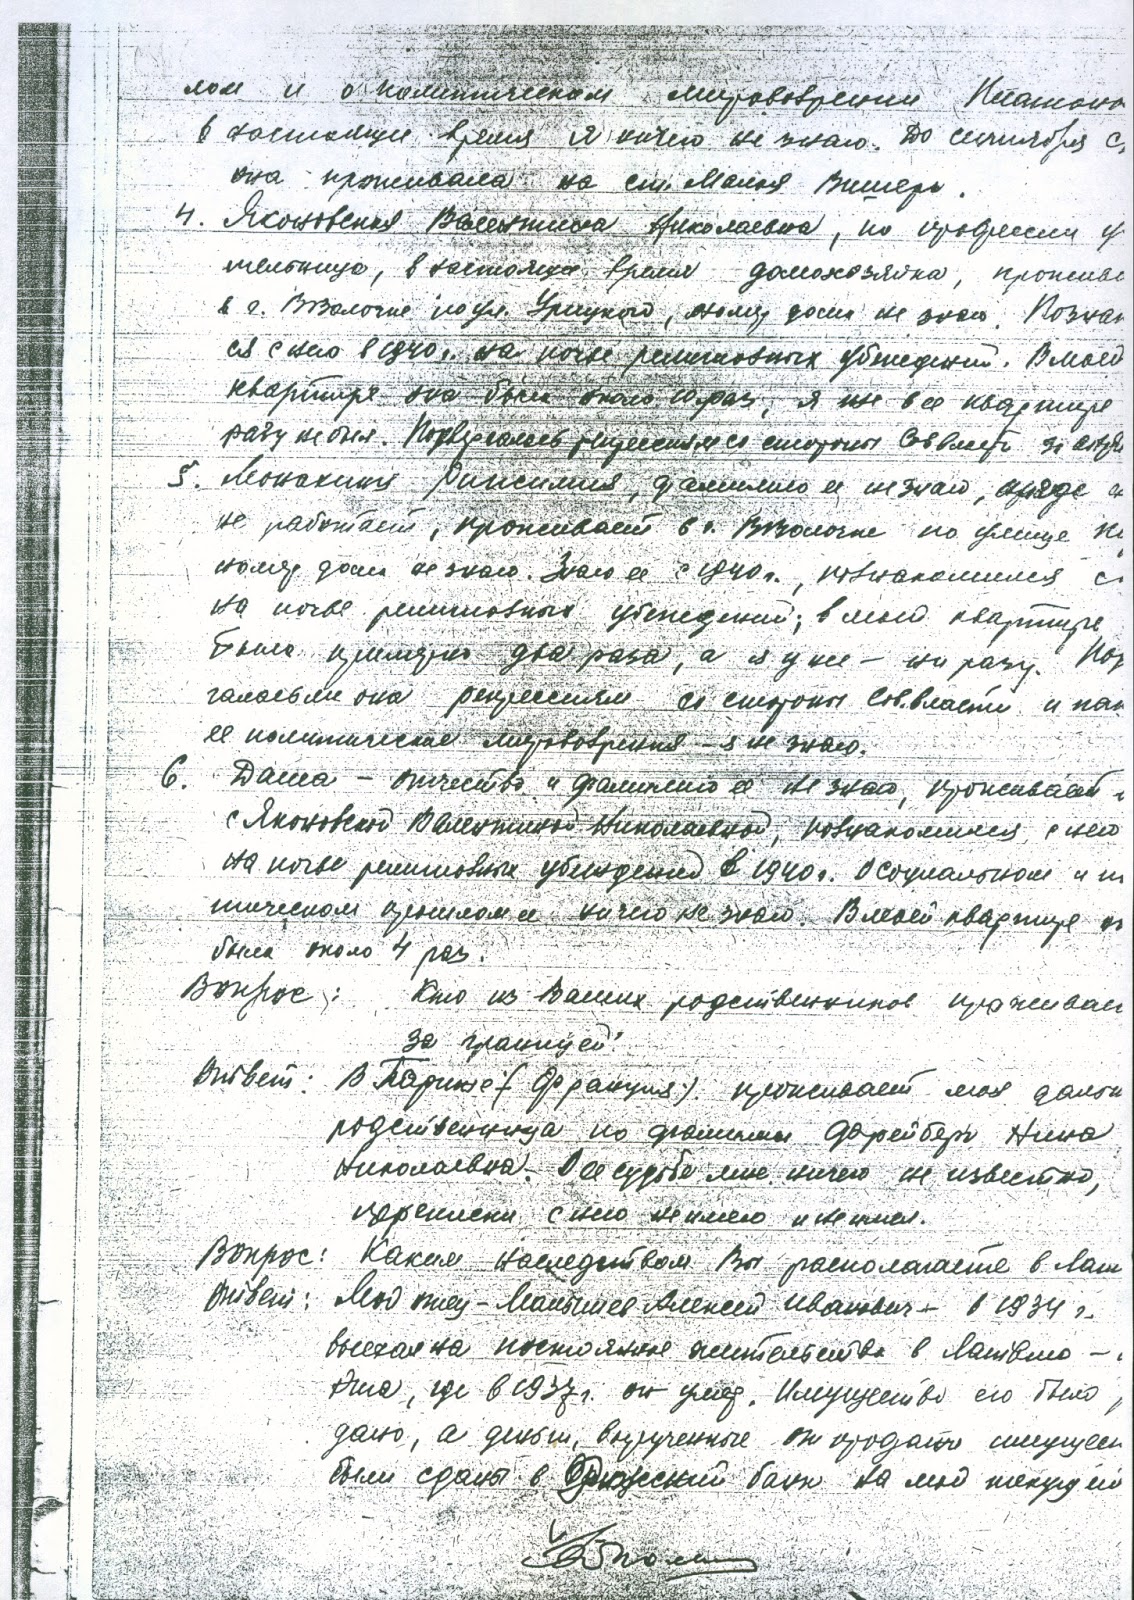 лом и о политическом мировоззрении Платоно
в настоящее время я ничего не знаю. До сентября с.
она проживала на ст. Малая Вишера.
4. Яконовская Валентина Николаевна, по профессии у
тельница, в настоящее время домохозяйка, прожива
в г. В-Волочке по ул. Урицкого, номер дома не знаю. Познак
ся с нею в 1940 г. на почве религиозных убеждений. В моей
квартире она была около 10 раз, я же в ее квартире
разу не был. Подвергалась репрессиям со стороны Соввласти за
5. Монахиня Рипсимия, фамилию ее не знаю, нигде н
не работает, проживает в г. В-Волочке по улице
номер дома не знаю. Знаю ее с 1940 г., познакомился с
на почве религиозных убеждений; в моей квартире
была примерно два раза, а я у нее – ни разу. Под
галась ли она репрессиям со стороны Сов.власти и как
ее политические мировоззрения – я не знаю.
6. Даша – отчество и фамилию ее не знаю, проживает
с Яконовской Валентиной Николаевной, познакомился с нею
на почве религиозных убеждений в 1940 г. О социальном и п
тическом прошлом ее ничего не знаю. В моей квартире
была около 4 раз.
Вопрос: Кто из Ваших родственников проживает
за границей?
Ответ: В Париже (Франция) проживает моя дальн
родственница по фамилии Нина
Николаевна. О ее судьбе мне ничего не известно,
переписки с нею не имею и не имел.
Вопрос: Каким наследством Вы располагаете в Лат
Ответ: Мой отец – Малышев Алексей Иванович – в 1934 г.
выехал на постоянное жительство в Латвию –
где в 1937 г. он умер. Имущество его было
дано, а деньги, вырученные от продажи имущес
были сданы в банк на мой текущий